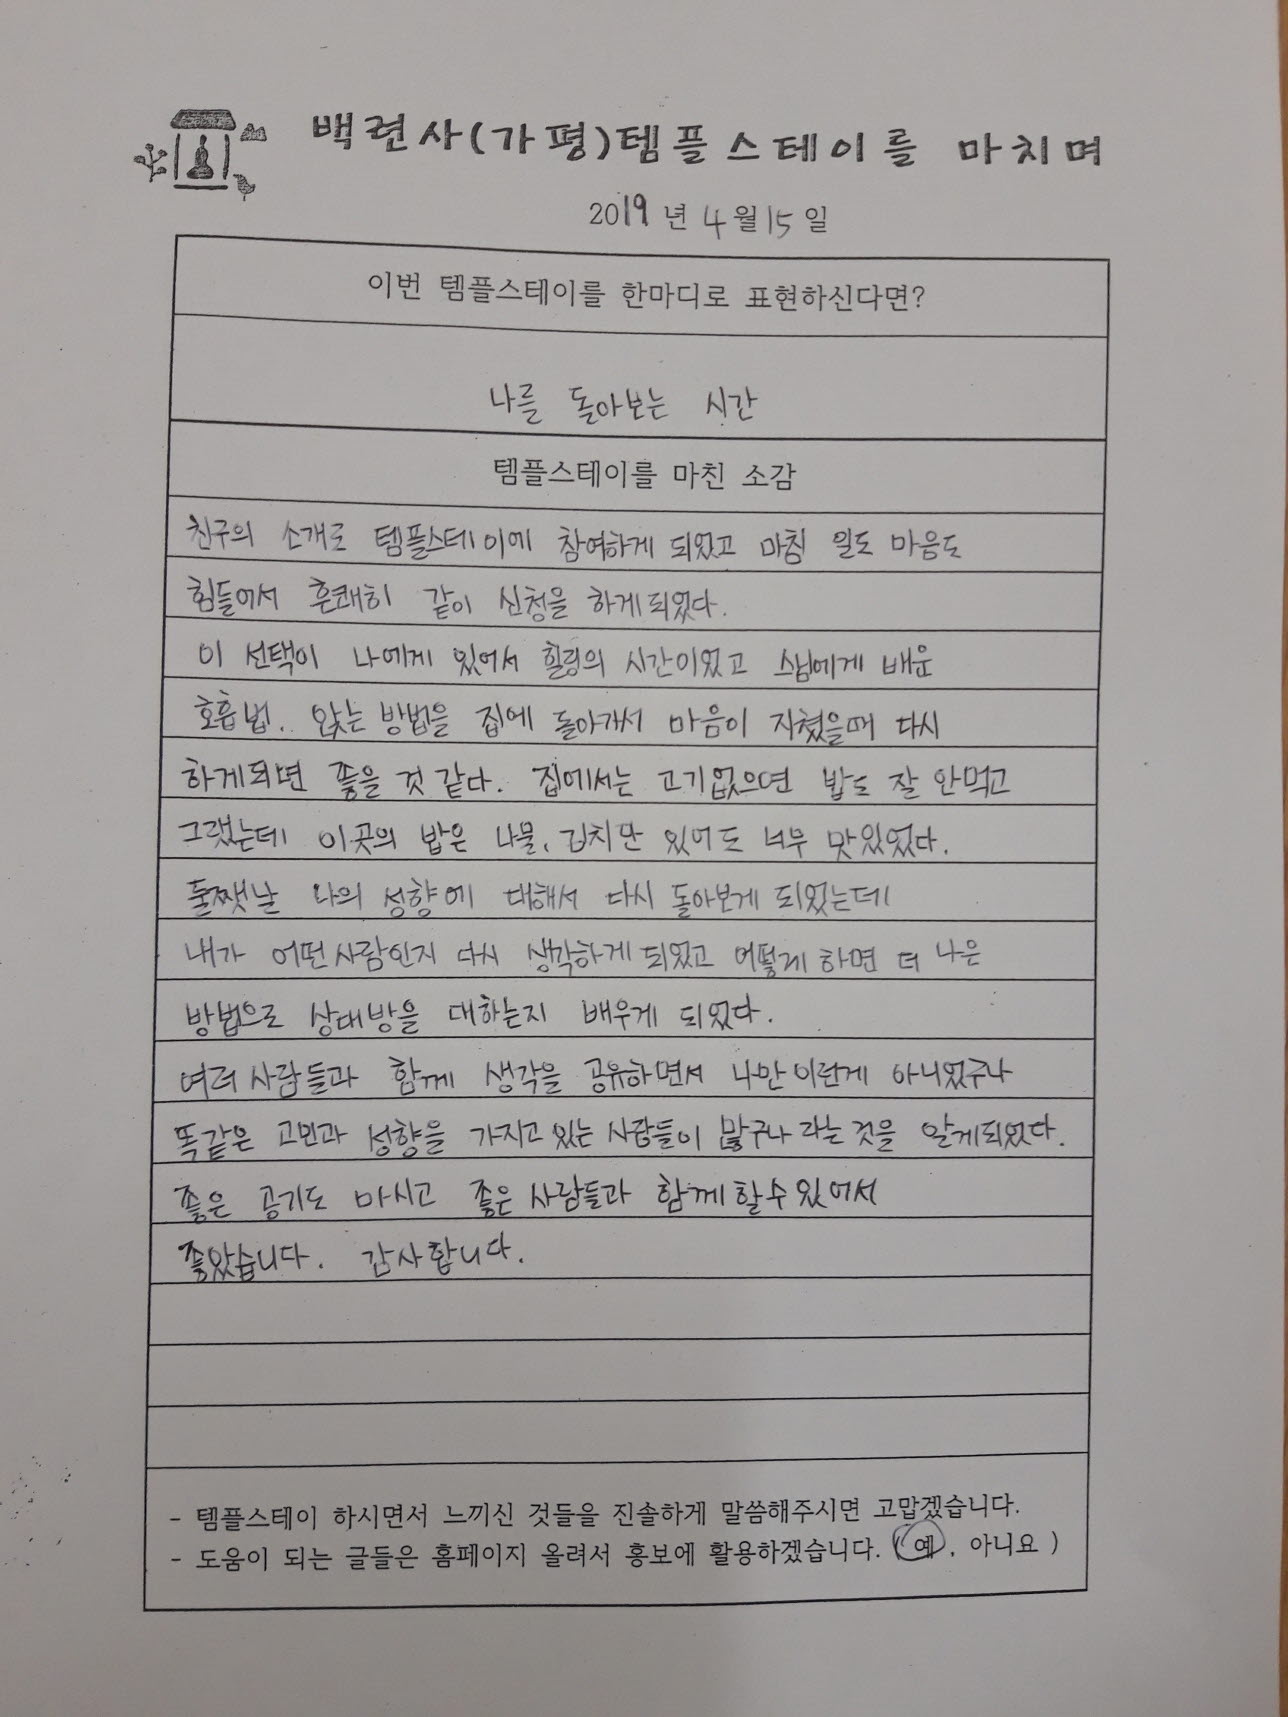 백련사(가평)템플스테이를 마치며
2019년 4월 15일
이번 템플스테이를 한마디로 표현하신다면?
나를 돌아보는 시간
템플스테이를 마친 소감
친구의 소개로 템플스테이에 참여하게 되었고 마침 일도 마음도
힘들어서 흔쾌히 같이 신청을 하게되었다.
이 선택이 나에게 있어서 힐링의 시간이었고 스님에게 배운
호흡법. 앉는 방법을 집에 돌아가서 마음이 지쳤을때 다시
하게되면 좋을 것 같다. 집에서는 고기없으면 밥도 잘 안먹고
그랬는데 이곳의 밥은 나물, 김치만 있어도 너무 맛있었다.
둘쨋날 나의 성향에 대해서 다시 돌아보게 되었는데
내가 어떤사람인지 다시 생각하게 되었고 어떻게 하면 더 나은
방법으로 상대방을 대하는지 배우게 되었다.
여러 사람들과 함께 생각을 공유하면서 나만이런게 아니었구나
똑같은 고민과 성향을 가지고 있는 사람들이 많구나 라는 것을 알게되었다.
좋은 공기도 마시고 좋은 사람들과 함께할수있어서
좋았습니다. 감사합니다.
- 템플스테이 하시면서 느끼신 것들을 진솔하게 말씀해주시면 고맙겠습니다.
- 도움이 되는 글들은 홈페이지 올려서 홍보에 활용하겠습니다. (예, 아니요)